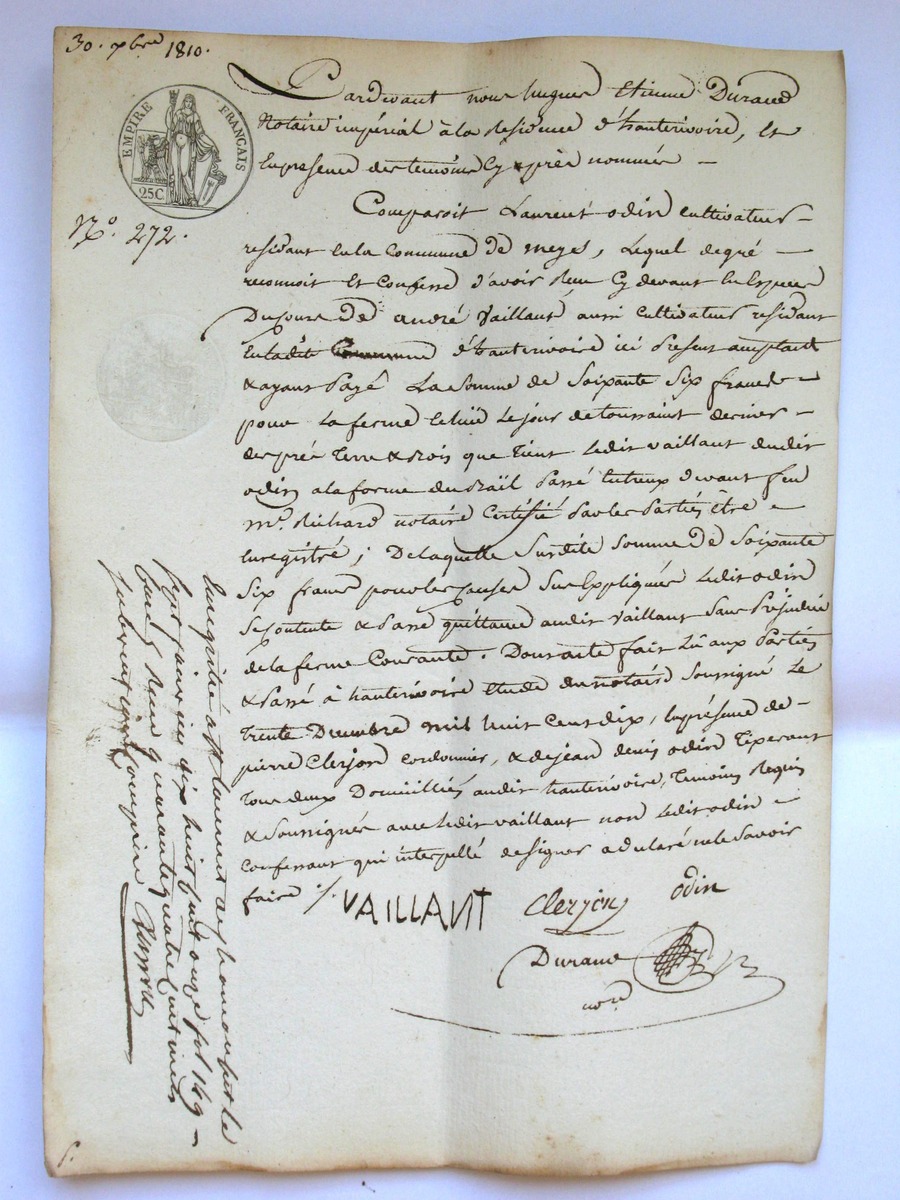 30. xbre 1810.
EMPIRE FRANÇAIS
25C
No. 272.
Pardevant nous hugues Etienne Durand
Notaire imperial à la Residence d'hauterivoire, Et
En presence des temoins Cy après nommés —
Comparoit Laurent odin cultivateur
residant En la Commune de meys, Lequel de gré —
reconnoit Et Confesse d'avoir Recu Cy devant En Especes
Du Cours De andré Vaillant, aussi cultivateur residant
En ladite Commune d'hauterivoire ici Present acceptant
& ayant Payé La Somme de Soixante Six francs —
pour La ferme Echue Le jour de toussaint dernier —
des prés Terre & Bois que Tient Ledit vaillant dudit
odin a la forme du Bail Passé Entreux devant feu
me. Richard notaire Certifié Par les Parties être —
Enregistré; De laquelle Susdite Somme De Soixante
Six francs pour les Causes Sus Expliquées Ledit odin
Se Contente & Passe quittance audit Vaillant Sans Préjudice
de la ferme Courante. Dont acte fait Lû aux Parties
& Passé à hauterivoire Etude du notaire Soussigné Le
Trente Decembre mil huit Cent dix, En présence de —
pierre Clerjon cordonnier, & de jean denis odin Tixerant
Tous deux Domiciliés audit hauterivoire, Temoins Requis
& Soussignés avec Ledit vaillant non Ledit odin —
Confessant qui interpellé de signer a declaré ne le Savoir
faire ./.
VAILLANT Clerjon odin
Durand
nore
Enregistré a St Laurent de chamousset le
Sept janvier dix huit Cent onze fol 149
Recu quarante quatre Centimes
Subvention Comprise